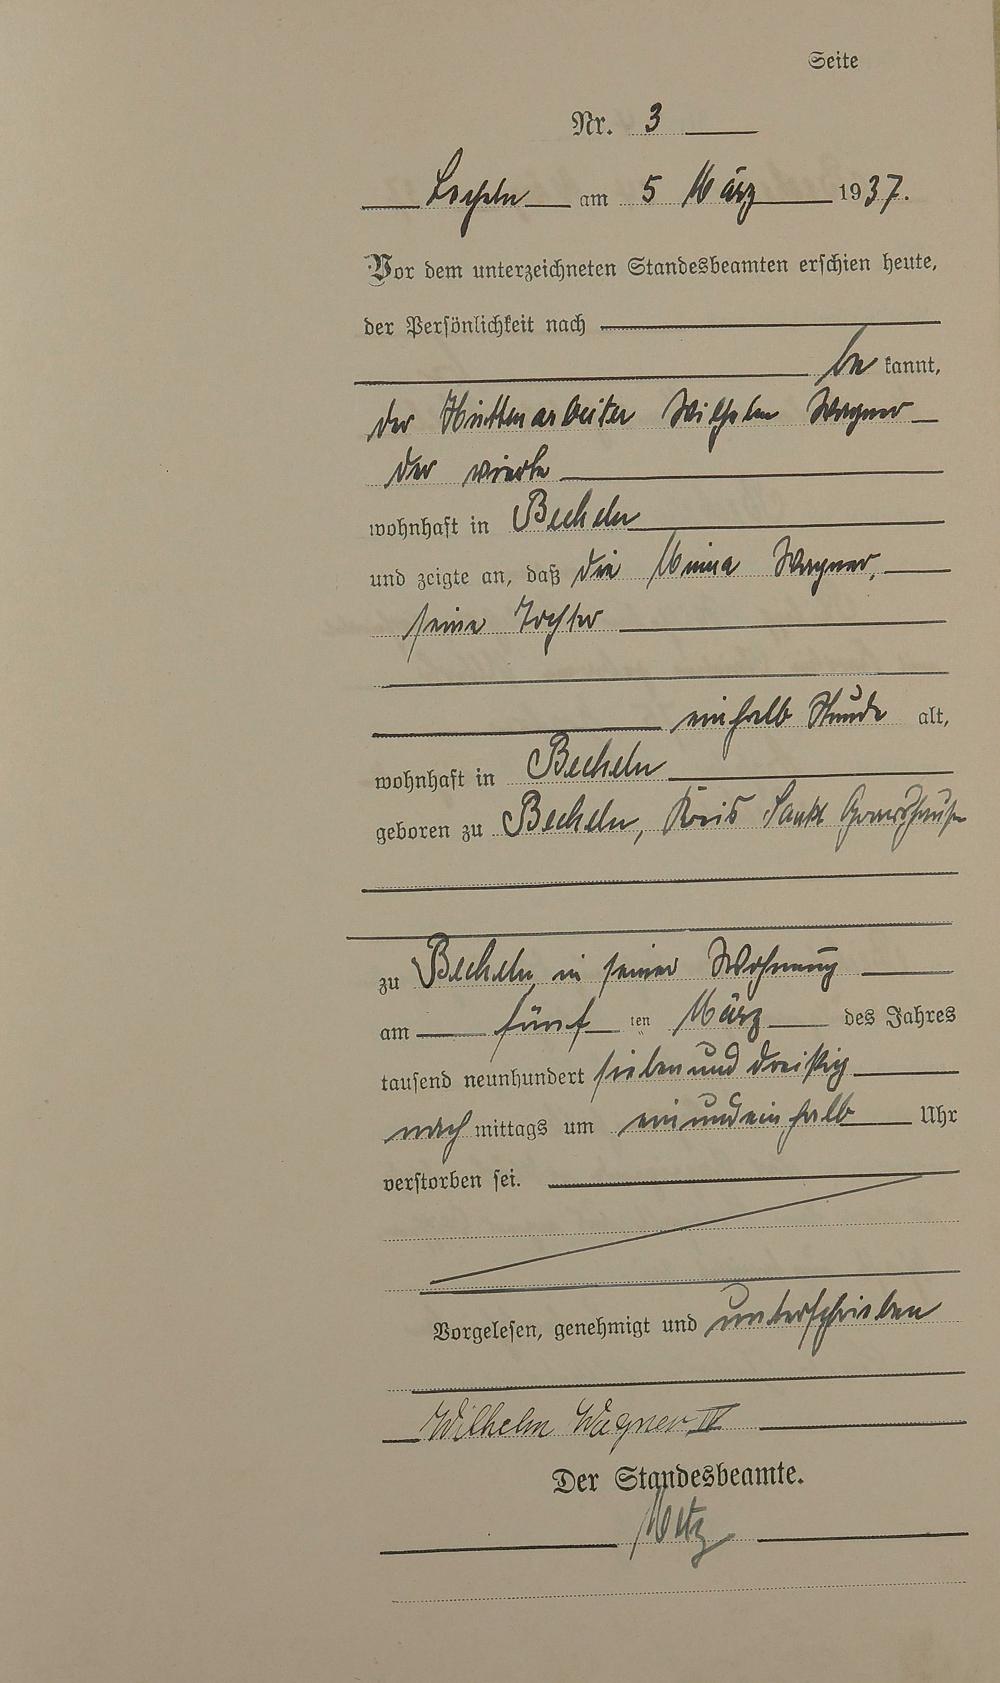 Seite
Nr. 3
Becheln am 5 März 1937.
Vor dem unterzeichneten Standesbeamten erschien heute,
der Persönlichkeit nach
be kannt,
der Hüttenarbeiter Wilhelm Wagner
der vierte
wohnhaft in Becheln
und zeigte an, daß die Minna Wagner,
seine Tochter
einhalb Stunde alt,
wohnhaft in Becheln
geboren zu Becheln, Kreis Sankt Goarshausen
zu Becheln in seiner Wohnung
am fünf ten März des Jahres
tausend neunhundert siebenunddreißig
nach mittags um einundeinhalb Uhr
verstorben sei.
Vorgelesen, genehmigt und unterschrieben
Wilhelm Wagner IV
Der Standesbeamte.
Metz